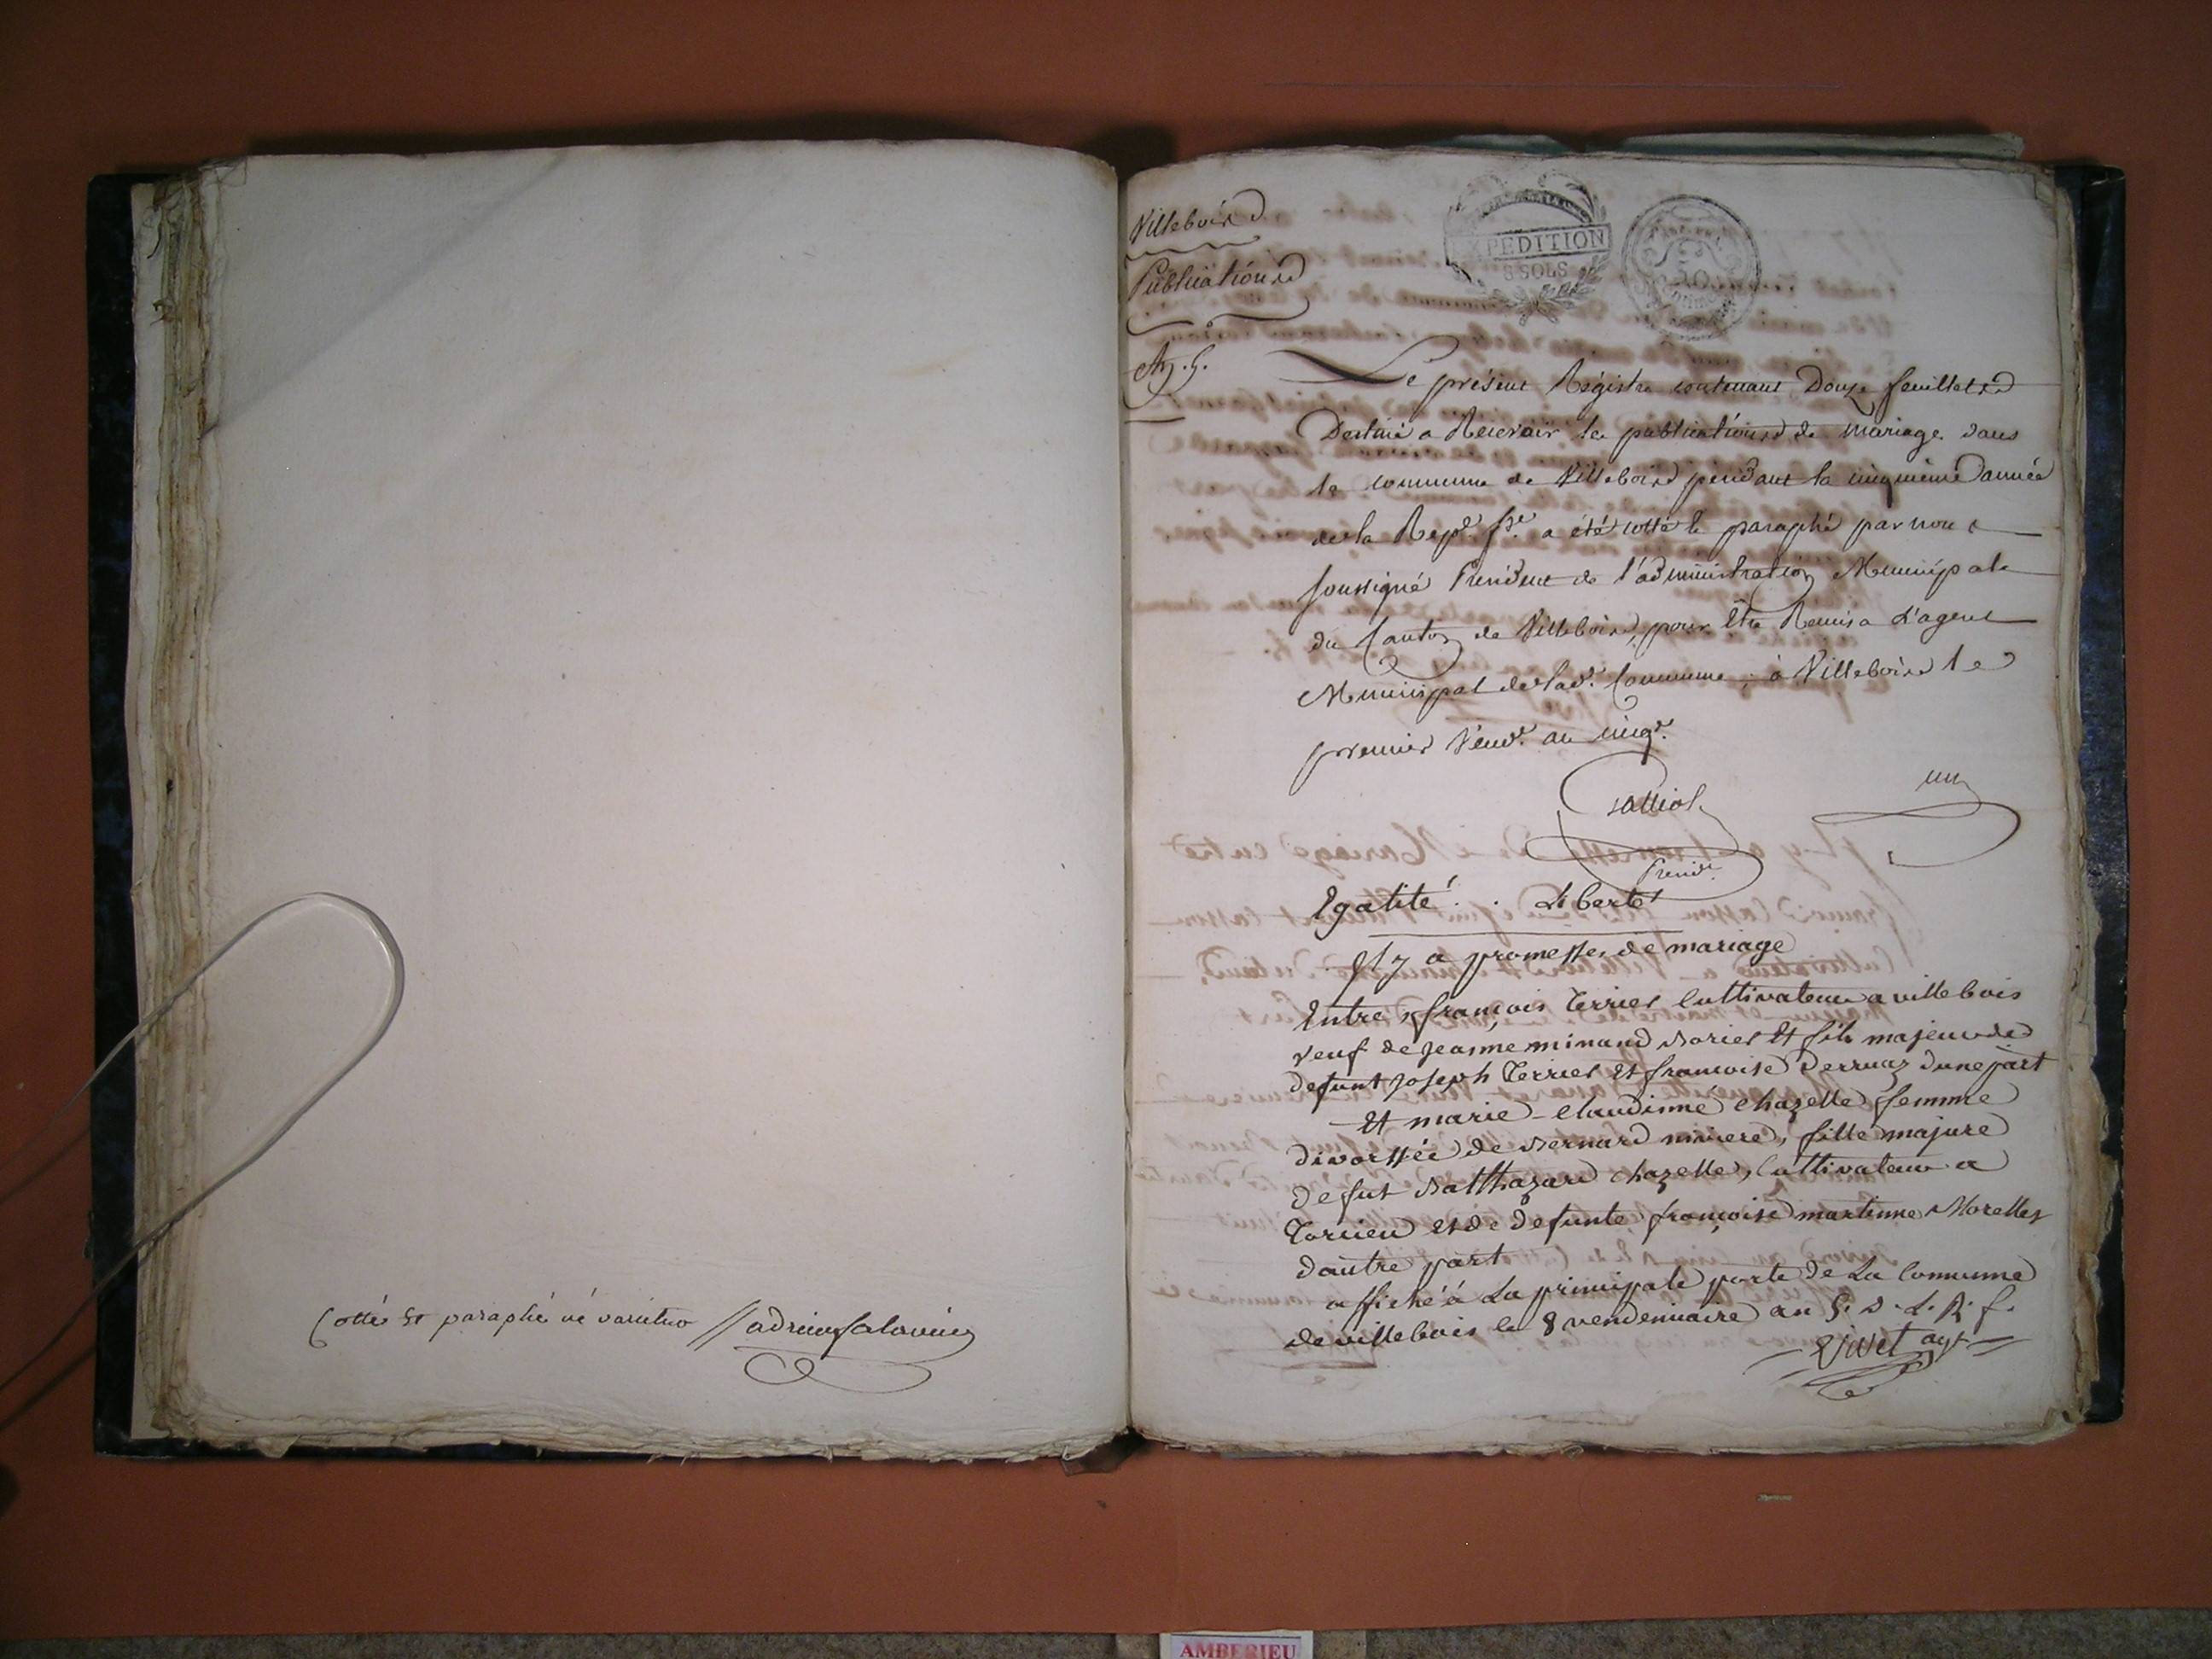 Cotté et paraphé né varietur
Villebois
Publications
An. 5.
EXPEDITION
8 SOLS
50
Le présent Régistre contenant Douze feuillets
Destiné a Recevoir les publications de mariage dans
la commune de Villebois pendant la cinquieme année
de la Repe. fse. a été cotté & paraphé par nous
soussigné President de l'administration Municipale
du Canton de Villebois, pour être Remis a L'agent
Municipal de lad. Commune, à Villebois le
premier Vendre. an cinqe.
un
Presidt.
Egalité. . Liberté
Il y a promesses de mariage
Entre françois Terrier Cultivateur a villebois
veuf de jeanne minand Dorier Et fils majeur de
defunt Joseph Terrier Et francoise Derruaz dune part
Et marie claudinne chazelle femme
divorssée de Bernard miviere, fille majure
de fut Balthazard chazelle, Cultivateur a
Torcieu et de defunte françoise martinne Morelles
dautre part
affiché à La principale porte de La Commune
de villebois le 8 vendemiaire an 5. D. L. R. f.
Vivet agt
AMBERIEU